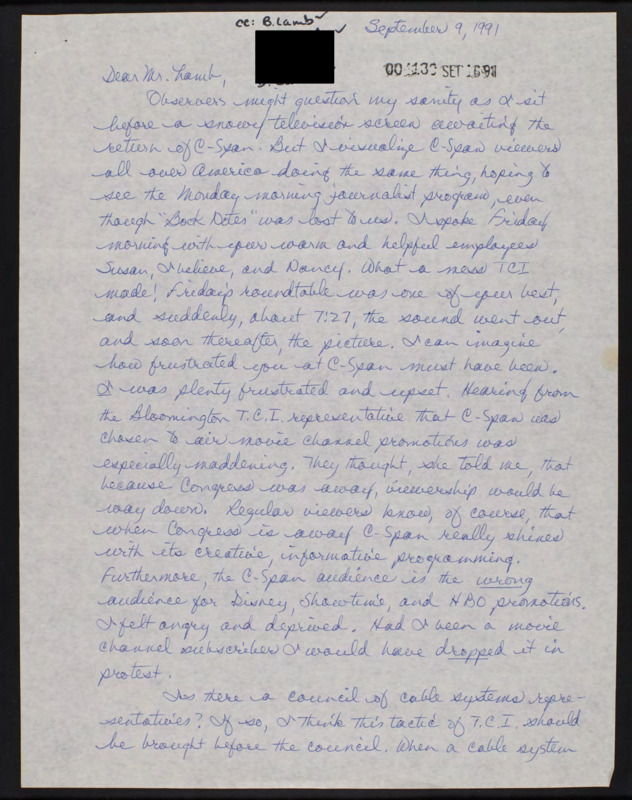 cc: B. Lamb
September 9, 1991
00 1130 SET 16 91
Dear Mr. Lamb,
Observers might question my sanity as I sit
before a snowy television screen awaiting the
return of C-Span. But I visualize C-Span viewers
all over America doing the same thing, hoping to
see the Monday morning journalist program, even
though "Book Notes" was lost to us. I spoke Friday
morning with your warm and helpful employees
Susan, I believe, and Nancy. What a mess TCI
made! Friday's roundtable was one of your best,
and suddenly, about 7:27, the sound went out,
and soon thereafter, the picture. I can imagine
how frustrated you at C-Span must have been.
I was plenty frustrated and upset. Hearing from
the Bloomington T.C.I. representative that C-Span was
chosen to air movie channel promotions was
especially maddening. They thought, she told me, that
because Congress was away, viewership would be
way down. Regular viewers know, of course, that
when Congress is away C-Span really shines
with its creative, informative programming.
Furthermore, the C-Span audience is the wrong
audience for Disney, Showtime, and HBO promotions.
I felt angry and deprived. Had I been a movie
channel subscriber I would have dropped it in
protest.
Is there a council of cable systems repre-
sentatives? If so, I think this tactic of T.C.I. should
be brought before the council. When a cable system